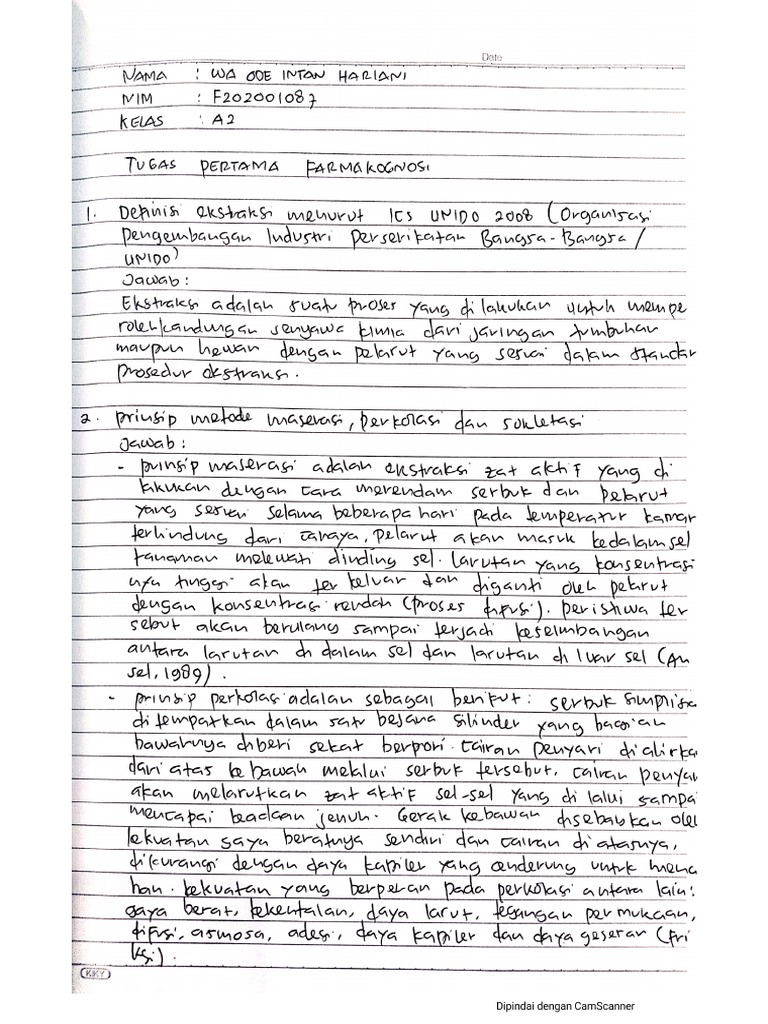 Date
NAMA : WA ODE INTAN HARIANI
NIM : F202001087
KELAS : A2
TUGAS PERTAMA FARMAKOGNOSI
1. Definisi ekstraksi menurut ICS UNIDO 2008 (Organisasi
Pengembangan Industri Perserikatan Bangsa-Bangsa /
UNIDO)
Jawab :
Ekstraksi adalah suatu proses yang dilakukan untuk mempe
roleh kandungan senyawa kimia dari jaringan tumbuhan
maupun hewan dengan pelarut yang sesuai dalam standar
prosedur ekstraksi.
2. prinsip metode maserasi, perkolasi dan sokletasi
Jawab :
- prinsip maserasi adalah ekstraksi zat aktif yang di
lakukan dengan cara merendam serbuk dan pelarut
yang sesuai selama beberapa hari pada temperatur kamar
terlindung dari cahaya, pelarut akan masuk kedalam sel
tanaman melewati dinding sel. larutan yang konsentrasi
nya tinggi akan ter keluar dan diganti oleh pelarut
dengan konsentrasi rendah (proses difusi). peristiwa ter
sebut akan berulang sampai terjadi keseimbangan
antara larutan di dalam sel dan larutan di luar sel (An
sel, 1989).
- prinsip perkolasi adalah sebagai berikut : serbuk simplisia
ditempatkan dalam satu bejana silinder yang bagian
bawahnya diberi sekat berpori. cairan penyari dialirka
dari atas ke bawah melalui serbuk tersebut, cairan penyar
akan melarutkan zat aktif sel-sel yang di lalui sampa
mencapai keadaan jenuh. Gerak kebawah disebabkan oleh
kekuatan gaya beratnya sendiri dan cairan di atasnya,
dikurangi dengan daya kapiler yang cenderung untuk mena
han. kekuatan yang berperan pada perkolasi antara lain :
gaya berat, kekentalan, daya larut, tegangan permukaan,
difusi, osmosa, adesi, daya kapiler dan daya geseran (fri
ksi).
KIKY
Dipindai dengan CamScanner